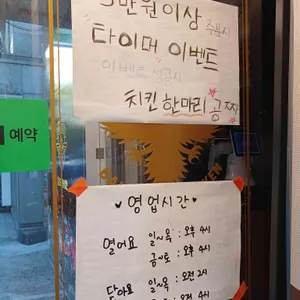 5만원 이상 주문시
타이머 이벤트
이벤트 성공시
치킨 한마리 공짜
예약
영업시간
열어요 일~목 : 오후 4시
금~토 : 오후 4시
닫아요 일~목 : 오전 2시
오전 4시